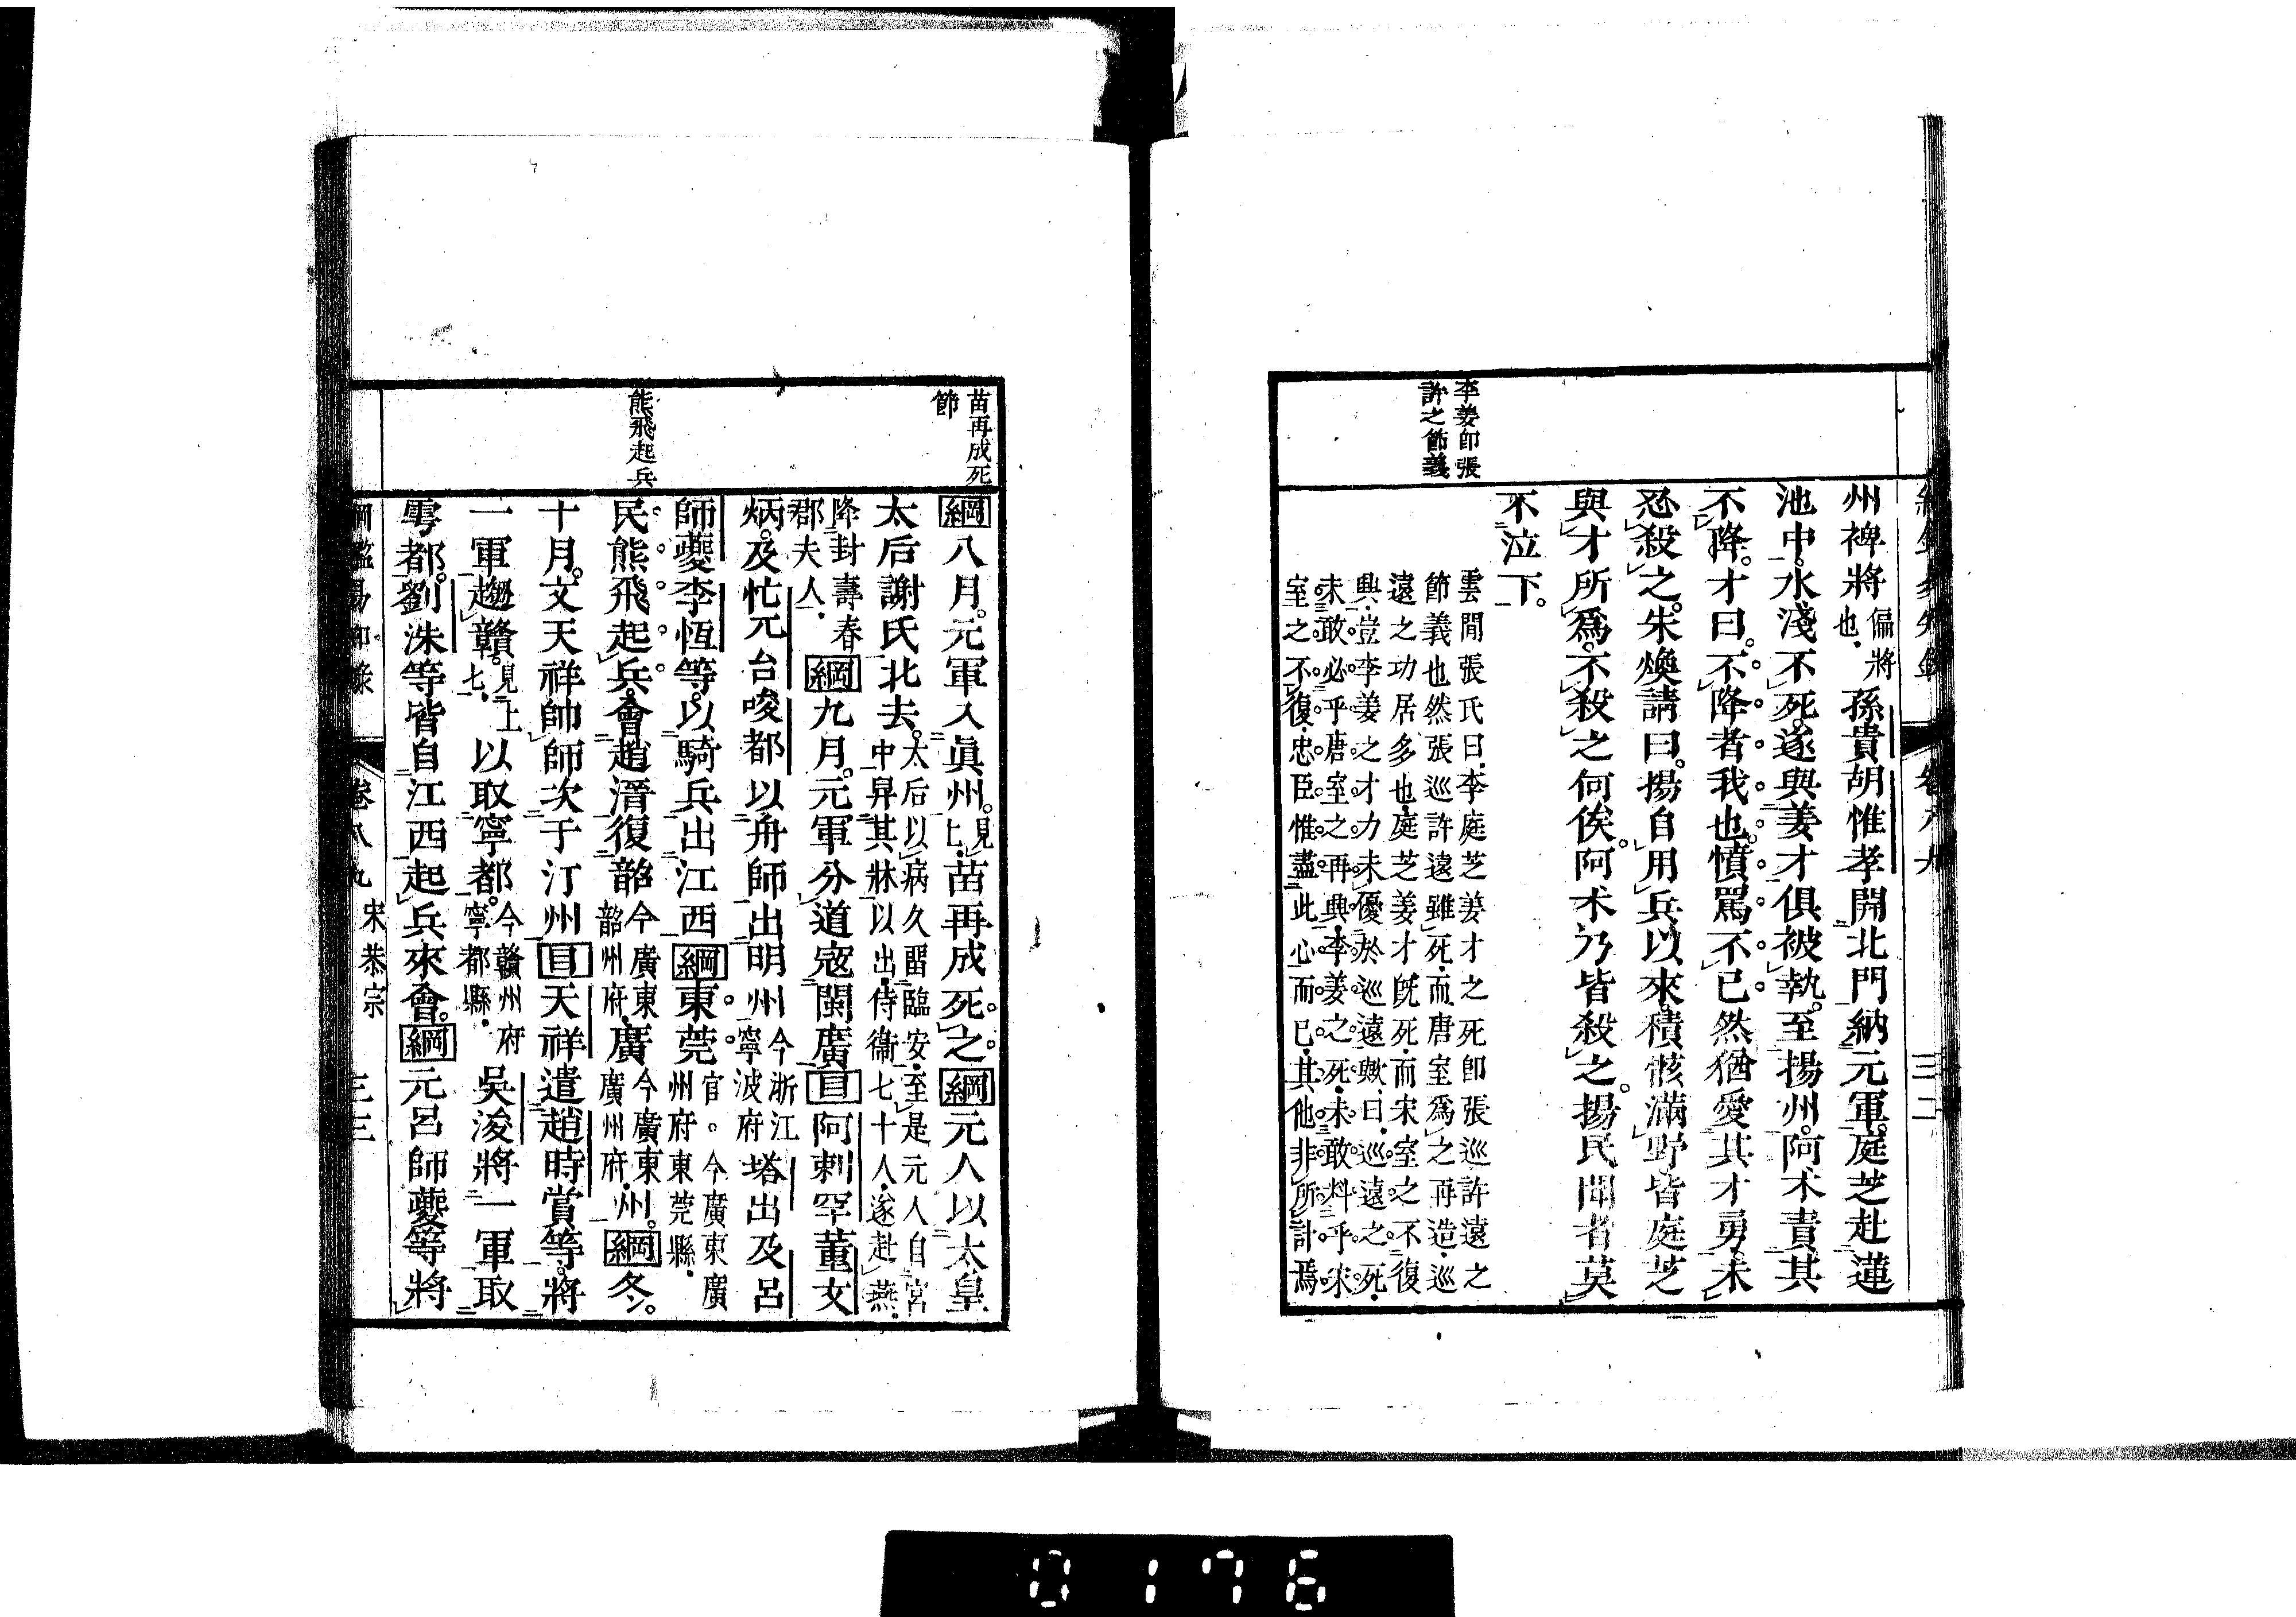 李姜卽張
許之節義
州裨將偏將也孫貴胡惟孝開北門納元軍。庭芝赴蓮
池中。水淺不死。遂與姜才俱被執。至揚州。阿朮責其
不降。才曰。不降者我也。憤罵不已。然猶愛其才勇。未
忍殺之。朱煥請曰。揚自用兵以來。積骸滿野。皆庭芝
與才所爲。不殺之何俟。阿朮乃皆殺之。揚民聞者莫
不泣下。
雲間張氏曰李庭芝姜才之死卽張巡許遠之
節義也然張巡許遠雖死而唐室爲之再造巡
遠之功居多也庭芝姜才旣死而宋室之不復
興豈李姜之才力未優於巡遠歟曰巡遠之死
未敢必乎唐室之再興李姜之死未敢料乎宋
室之不復忠臣惟盡此心而已其他非所計焉
三二
苗再成死
節
熊飛起兵
綱八月。元軍入眞州。見上苗再成死之。綱元人以太皇
太后謝氏北去。太后以病久留臨安至是元人自宮中舁其牀以出侍衞七十人遂赴燕
降封壽春郡夫人綱九月。元軍分道寇閩廣目阿剌罕董文
炳。及忙兀台唆都以舟師出明州今浙江寧波府塔出及呂
師夔李恆等。以騎兵出江西綱東莞官。今廣東廣州府東莞縣
民熊飛起兵。會趙溍復韶今廣東韶州府廣今廣東廣州府州。綱冬。
十月。文天祥帥師次于汀州目天祥遣趙時賞等。將
一軍趨贛。見上七以取寧都。今贛州府寧都縣吳浚將一軍取
雩都。劉洙等皆自江西起兵來會。綱元呂師夔等將
卷八九 宋恭宗 三三
0176